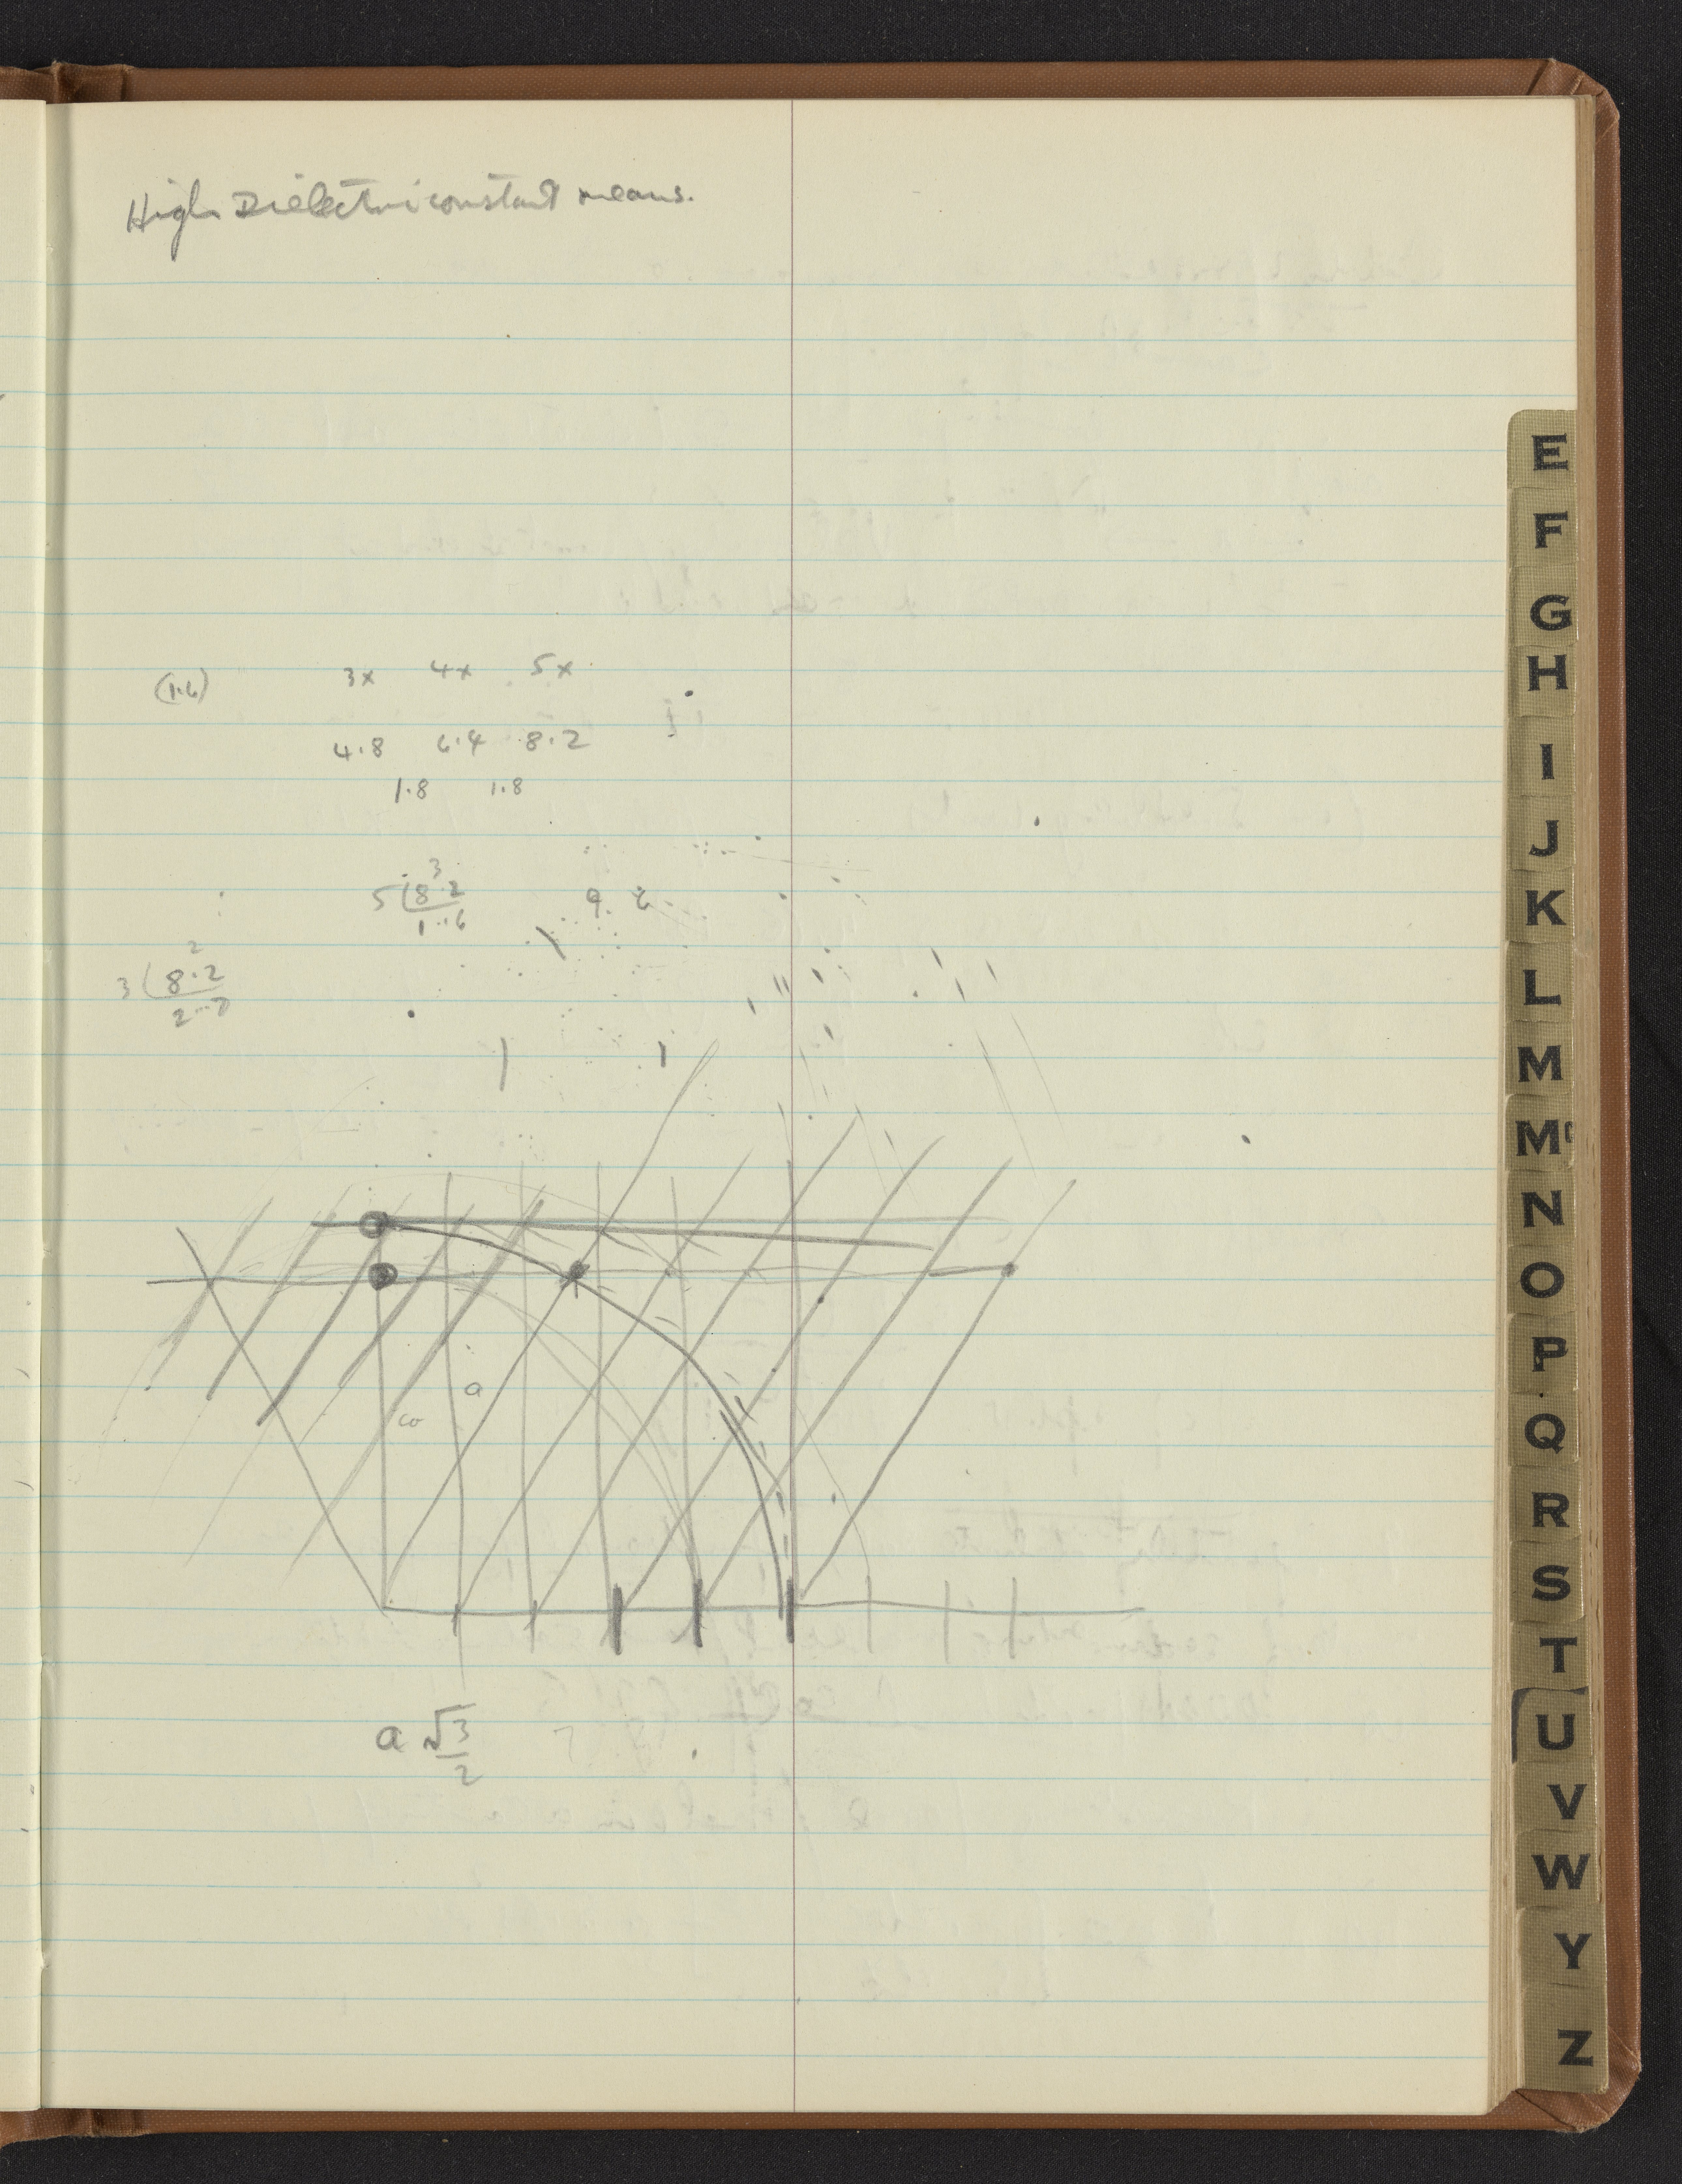 High Dielectric constant means.
(1.6) 3x 4x 5x
4.8 6.4 8.2
1.8 1.8
5 8.2 3
1.6
3 8.2 2
2.7
a
co
a √3
2
E
F
G
H
I
J
K
L
M
M
N
O
P
Q
R
S
T
U
V
W
Y
Z